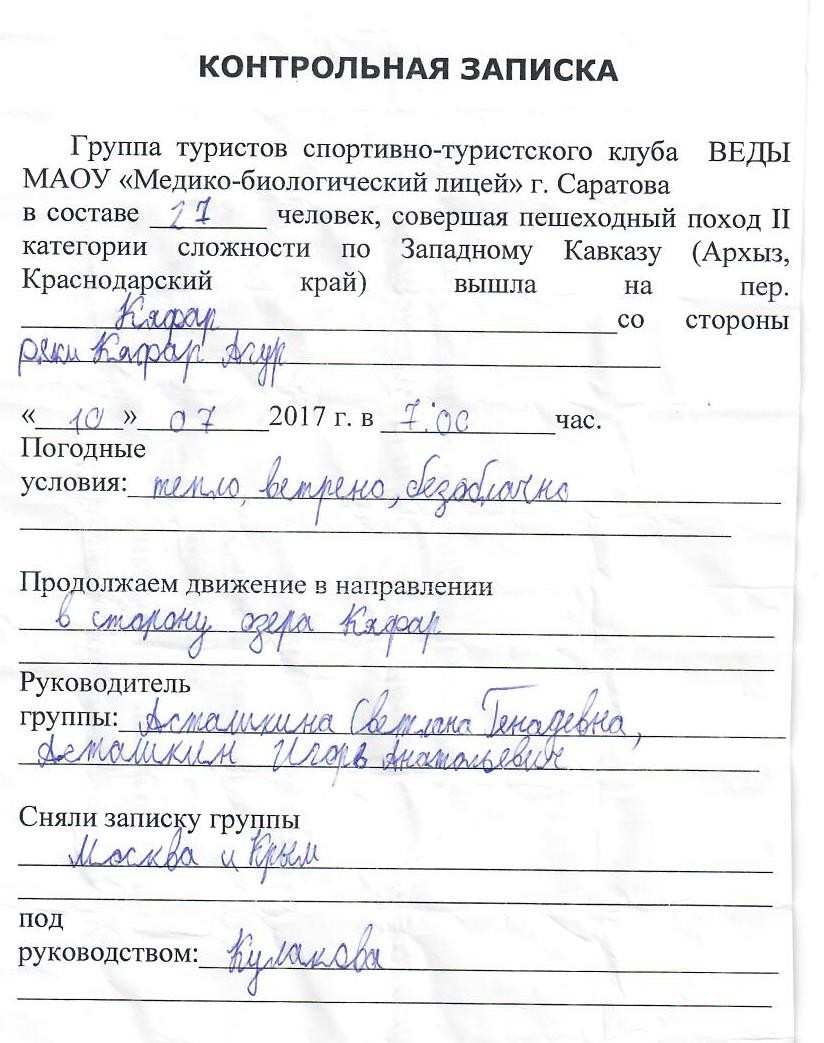 КОНТРОЛЬНАЯ ЗАПИСКА
Группа туристов спортивно-туристского клуба ВЕДЫ
МАОУ «Медико-биологический лицей» г. Саратова
в составе 27 человек, совершая пешеходный поход II
категории сложности по Западному Кавказу (Архыз,
Краснодарский край) вышла на пер.
Кяфар со стороны
реки Кяфар Агур
«10» 07 2017 г. в 7:00 час.
Погодные
условия: тепло, ветрено, безоблачно
Продолжаем движение в направлении
в сторону озера Кяфар
Руководитель
группы: Асташкина Светлана Генадевна,
Асташкин Игорь Анатольевич
Сняли записку группы
Москва и Крым
под
руководством: Кулакова